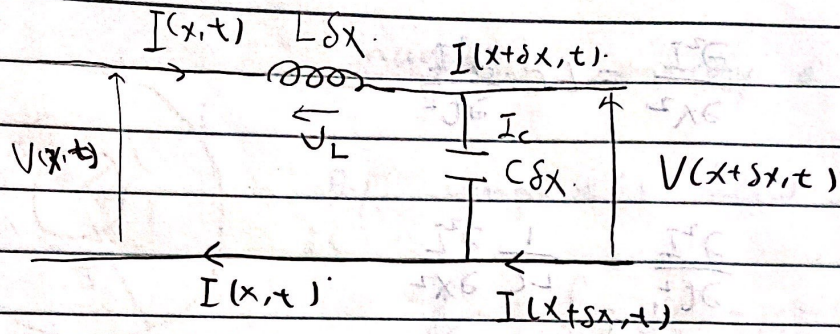 I(x,t) Lδx.
I(x+δx,t).
V(x,t)
V_L
I_c
Cδx.
V(x+δx,t)
I(x,t)
I(x+δx,t)